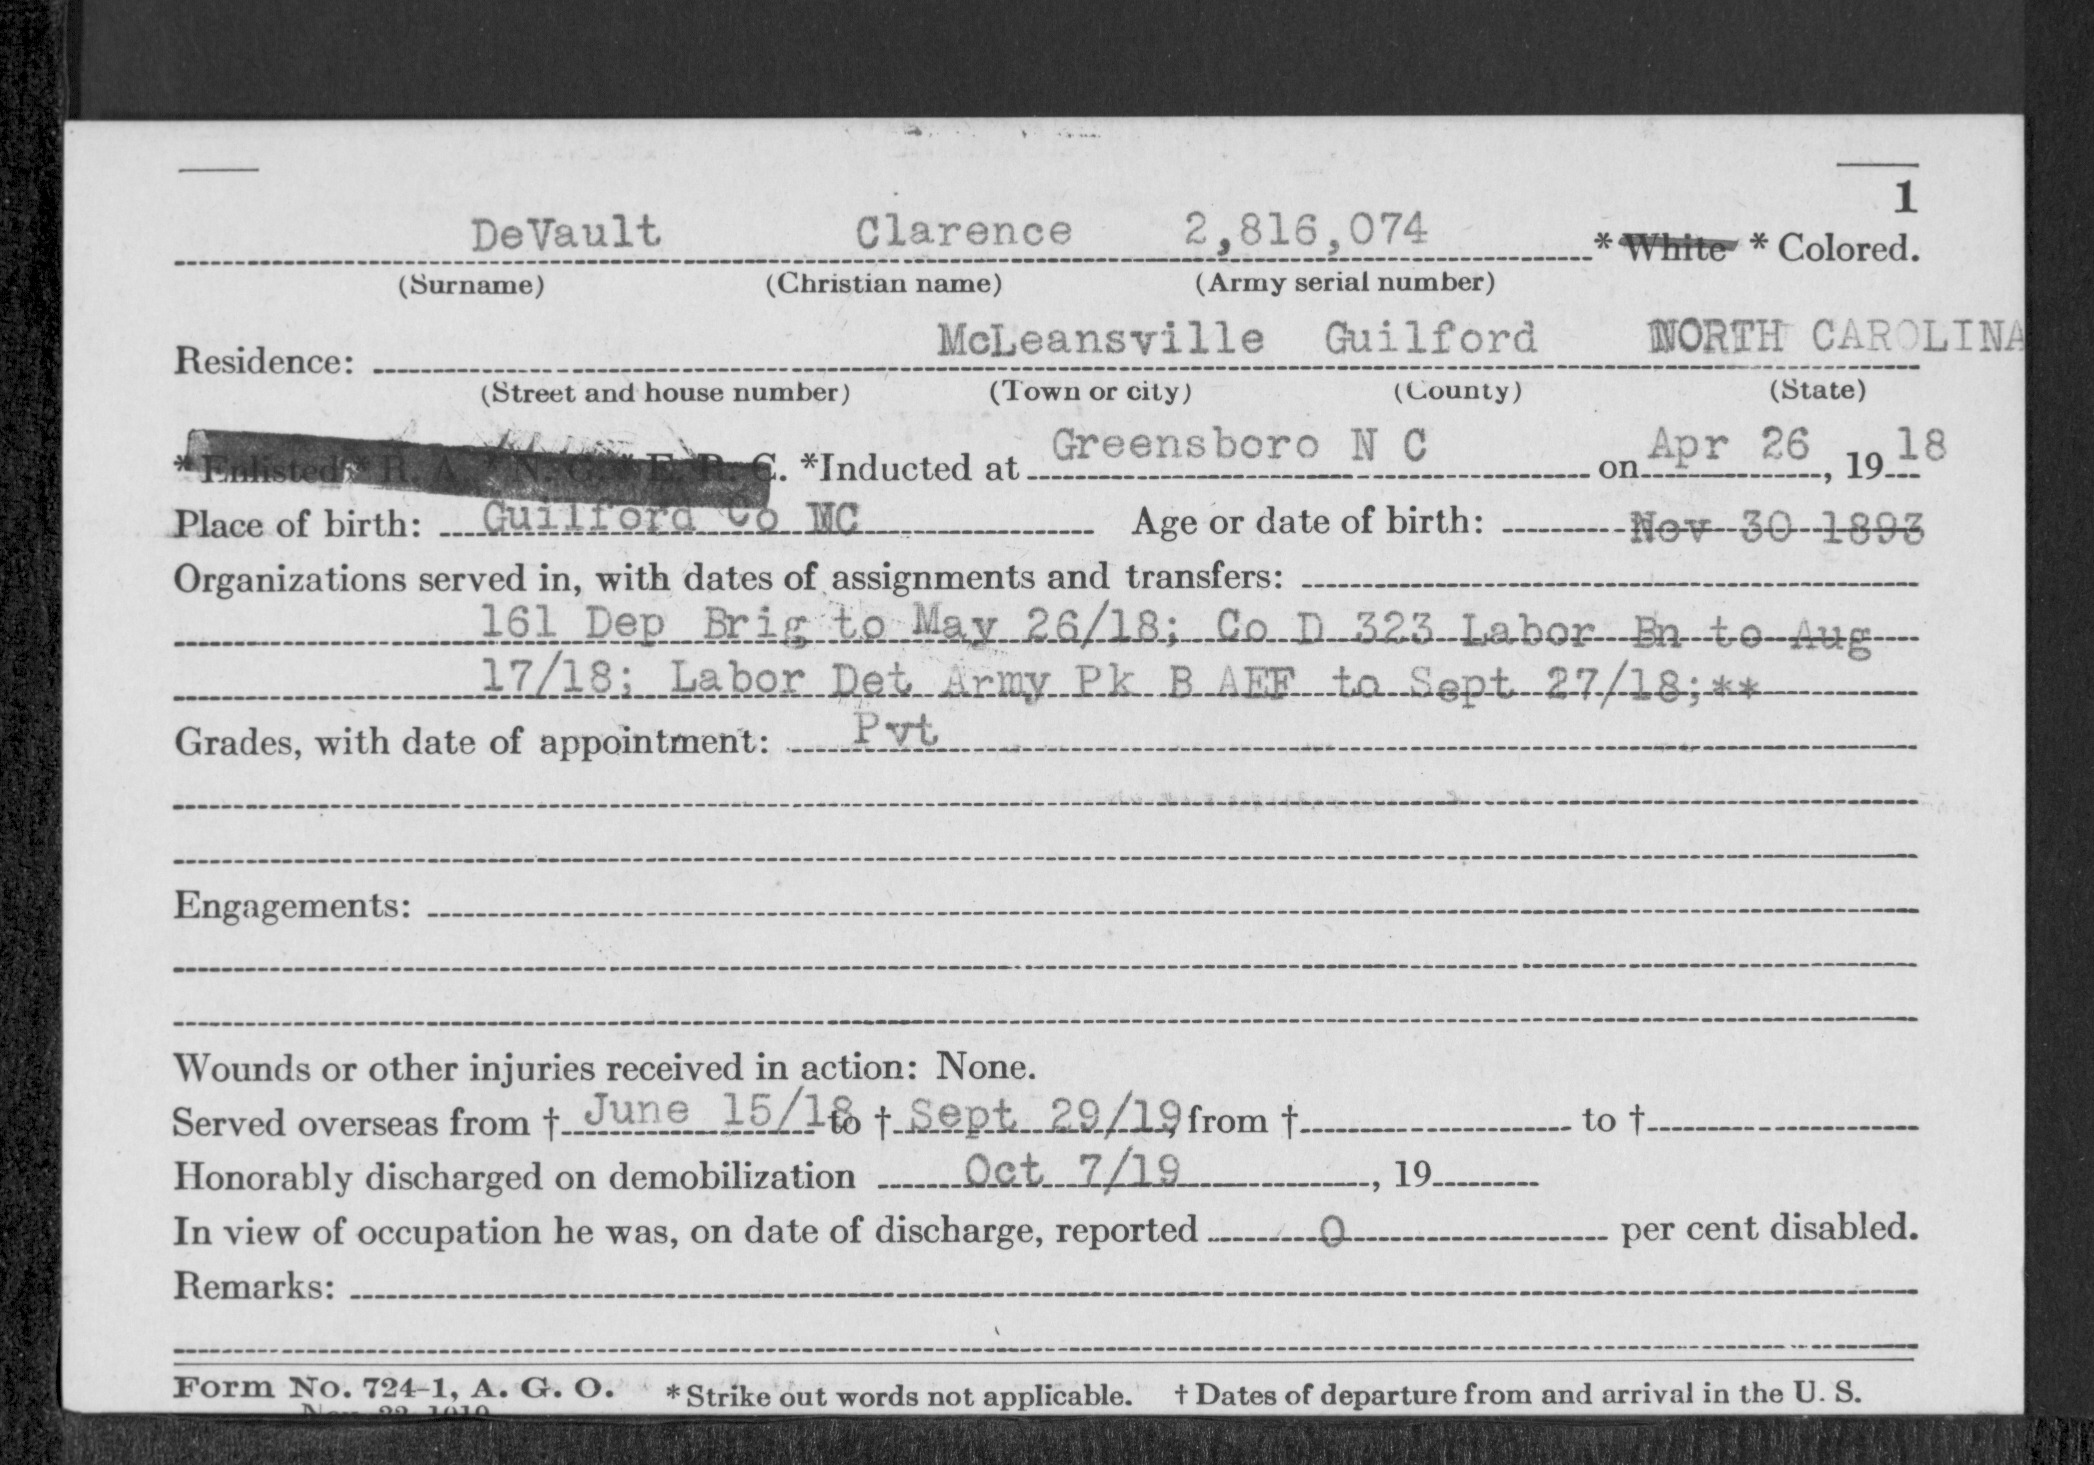 1
DeVault Clarence 2,816,074 * White * Colored.
(Surname) (Christian name) (Army serial number)
Residence: McLeansville Guilford NORTH CAROLINA
(Street and house number) (Town or city) (County) (State)
* Enlisted * R. A. * N. G. * E. R. C. *Inducted at Greensboro N C on Apr 26, 1918
Place of birth: Guilford Co NC Age or date of birth: Nov 30 1893
Organizations served in, with dates of assignments and transfers:
161 Dep Brig to May 26/18; Co D 323 Labor Bn to Aug
17/18; Labor Det Army Pk B AEF to Sept 27/18;**
Grades, with date of appointment: Pvt
Engagements:
Wounds or other injuries received in action: None.
Served overseas from † June 15/18 to † Sept 29/19, from † to †
Honorably discharged on demobilization Oct 7/19, 19
In view of occupation he was, on date of discharge, reported 0 per cent disabled.
Remarks:
Form No. 724-1, A. G. O. *Strike out words not applicable. † Dates of departure from and arrival in the U. S.
Nov. 22, 1919